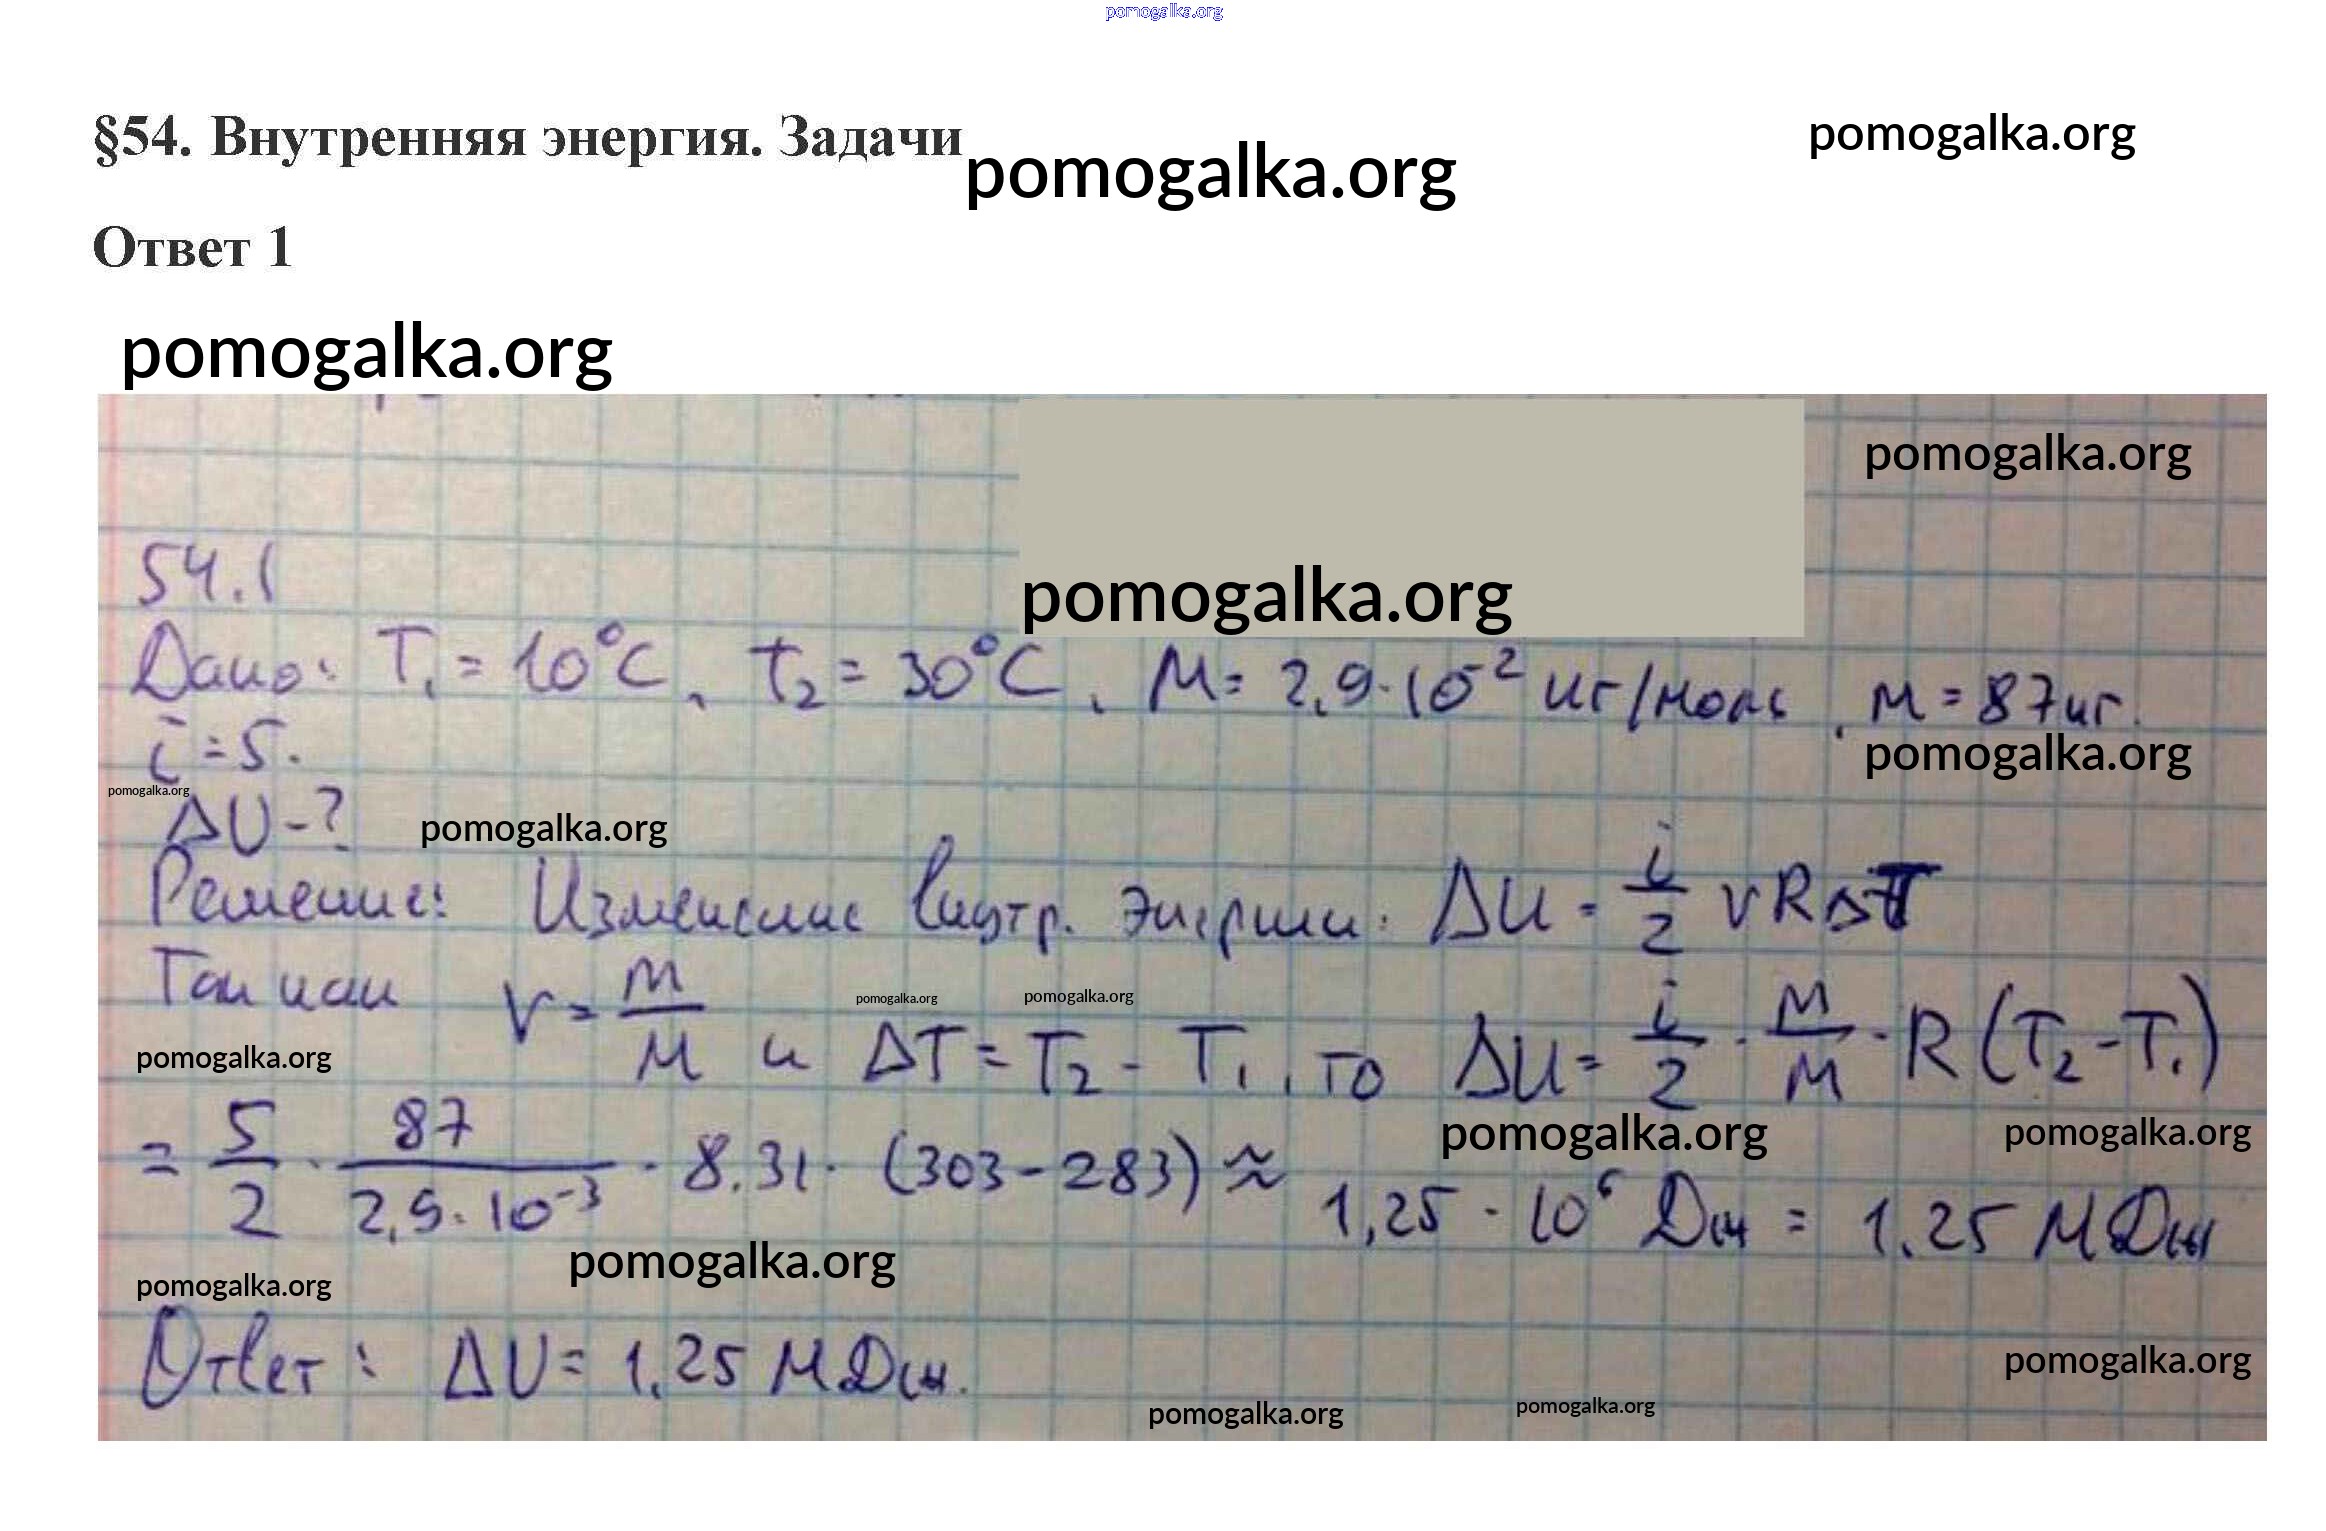 pomogalka.org
§54. Внутренняя энергия. Задачи
pomogalka.org
pomogalka.org
Ответ 1
pomogalka.org
pomogalka.org
pomogalka.org
54.1
Дано: T₁ = 10°C, t₂ = 30°C, M = 2,9·10⁻² кг/моль, m = 87 кг.
pomogalka.org
i = 5.
pomogalka.org
ΔU - ?
pomogalka.org
Решение: Изменение внутр. энергии: ΔU = i/2 νRΔT
Так как ν = m/M и ΔT = T₂ - T₁, то ΔU = i/2 · m/M · R(T₂-T₁)
pomogalka.org
pomogalka.org
pomogalka.org
= 5/2 · 87/2,9·10⁻³ · 8.31 · (303-283) ≈ 1,25 · 10⁶ Дж = 1.25 МДж
pomogalka.org
pomogalka.org
pomogalka.org
pomogalka.org
Ответ: ΔU = 1.25 МДж.
pomogalka.org
pomogalka.org
pomogalka.org